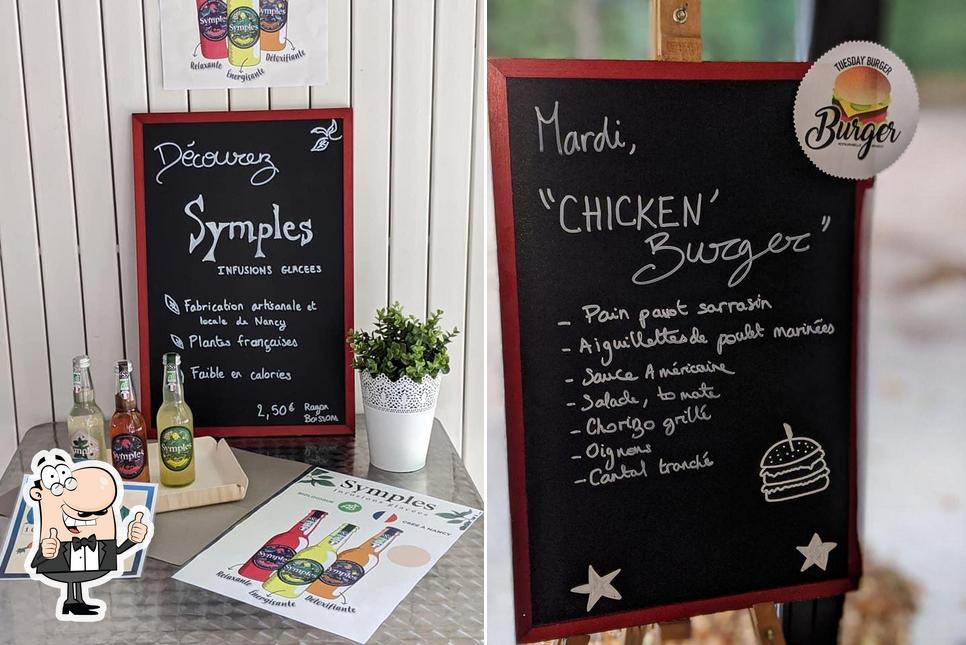 Symples
Symples
Symples
Relaxante
Energisante
Détoxifiante
Découvrez
Symples
INFUSIONS GLACEES
Fabrication artisanale et
locale de Nancy
Plantes françaises
Faible en calories
2,50€ Rayon
Boisson
Symples
Symples
Symples
Symples
Infusions glacées
BIOLOGIQUE
CRÉÉ À NANCY
Symples
Symples
Symples
Relaxante
Energisante
Détoxifiante
TUESDAY BURGER
Burger
Mardi,
"CHICKEN'
Burger"
- Pain pavot sarrasin
- Aiguillettes de poulet marinées
- Sauce Américaine
- Salade, tomate
- Chorizo grillé
- Oignons
- Cantal tranché